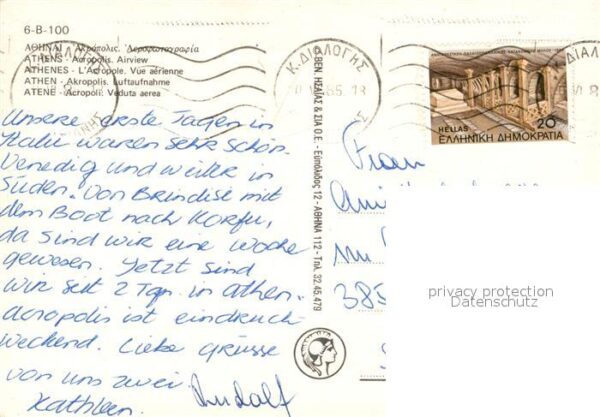 6-B-100
ΑΘΗΝΑΙ Ἀκρόπολις. Ἀεροφωτογραφία
ATHENS - Acropolis. Airview
ATHENES - L'Acropole. Vue aérienne
ATHEN - Akropolis. Luftaufnahme
ATENE - Acropoli: Veduta aerea
Unsere erste Tagen in
Italië waren sehr schön.
Venedig und weiter in
Süden. Von Brindise mit
dem Boot nach Korfu,
da sind wir eine Woche
gewesen. Jetzt sind
wir seit 2 Tgn. in Athen.
Acropolis ist eindruck-
weckend. Liebe grüsse
von uns zwei
Kathleen. Rudolf
ΒΕΝ. ΗΣΑΪΑΣ & ΣΙΑ Ο.Ε. - Εὐπόλιδος 12 - ΑΘΗΝΑ 112 - Τηλ. 32.45.479
Κ.ΔΙΑΛΟΓΗΣ
85.18
HELLAS 20
ΕΛΛΗΝΙΚΗ ΔΗΜΟΚΡΑΤΙΑ
Frau
385
privacy protection
Datenschutz